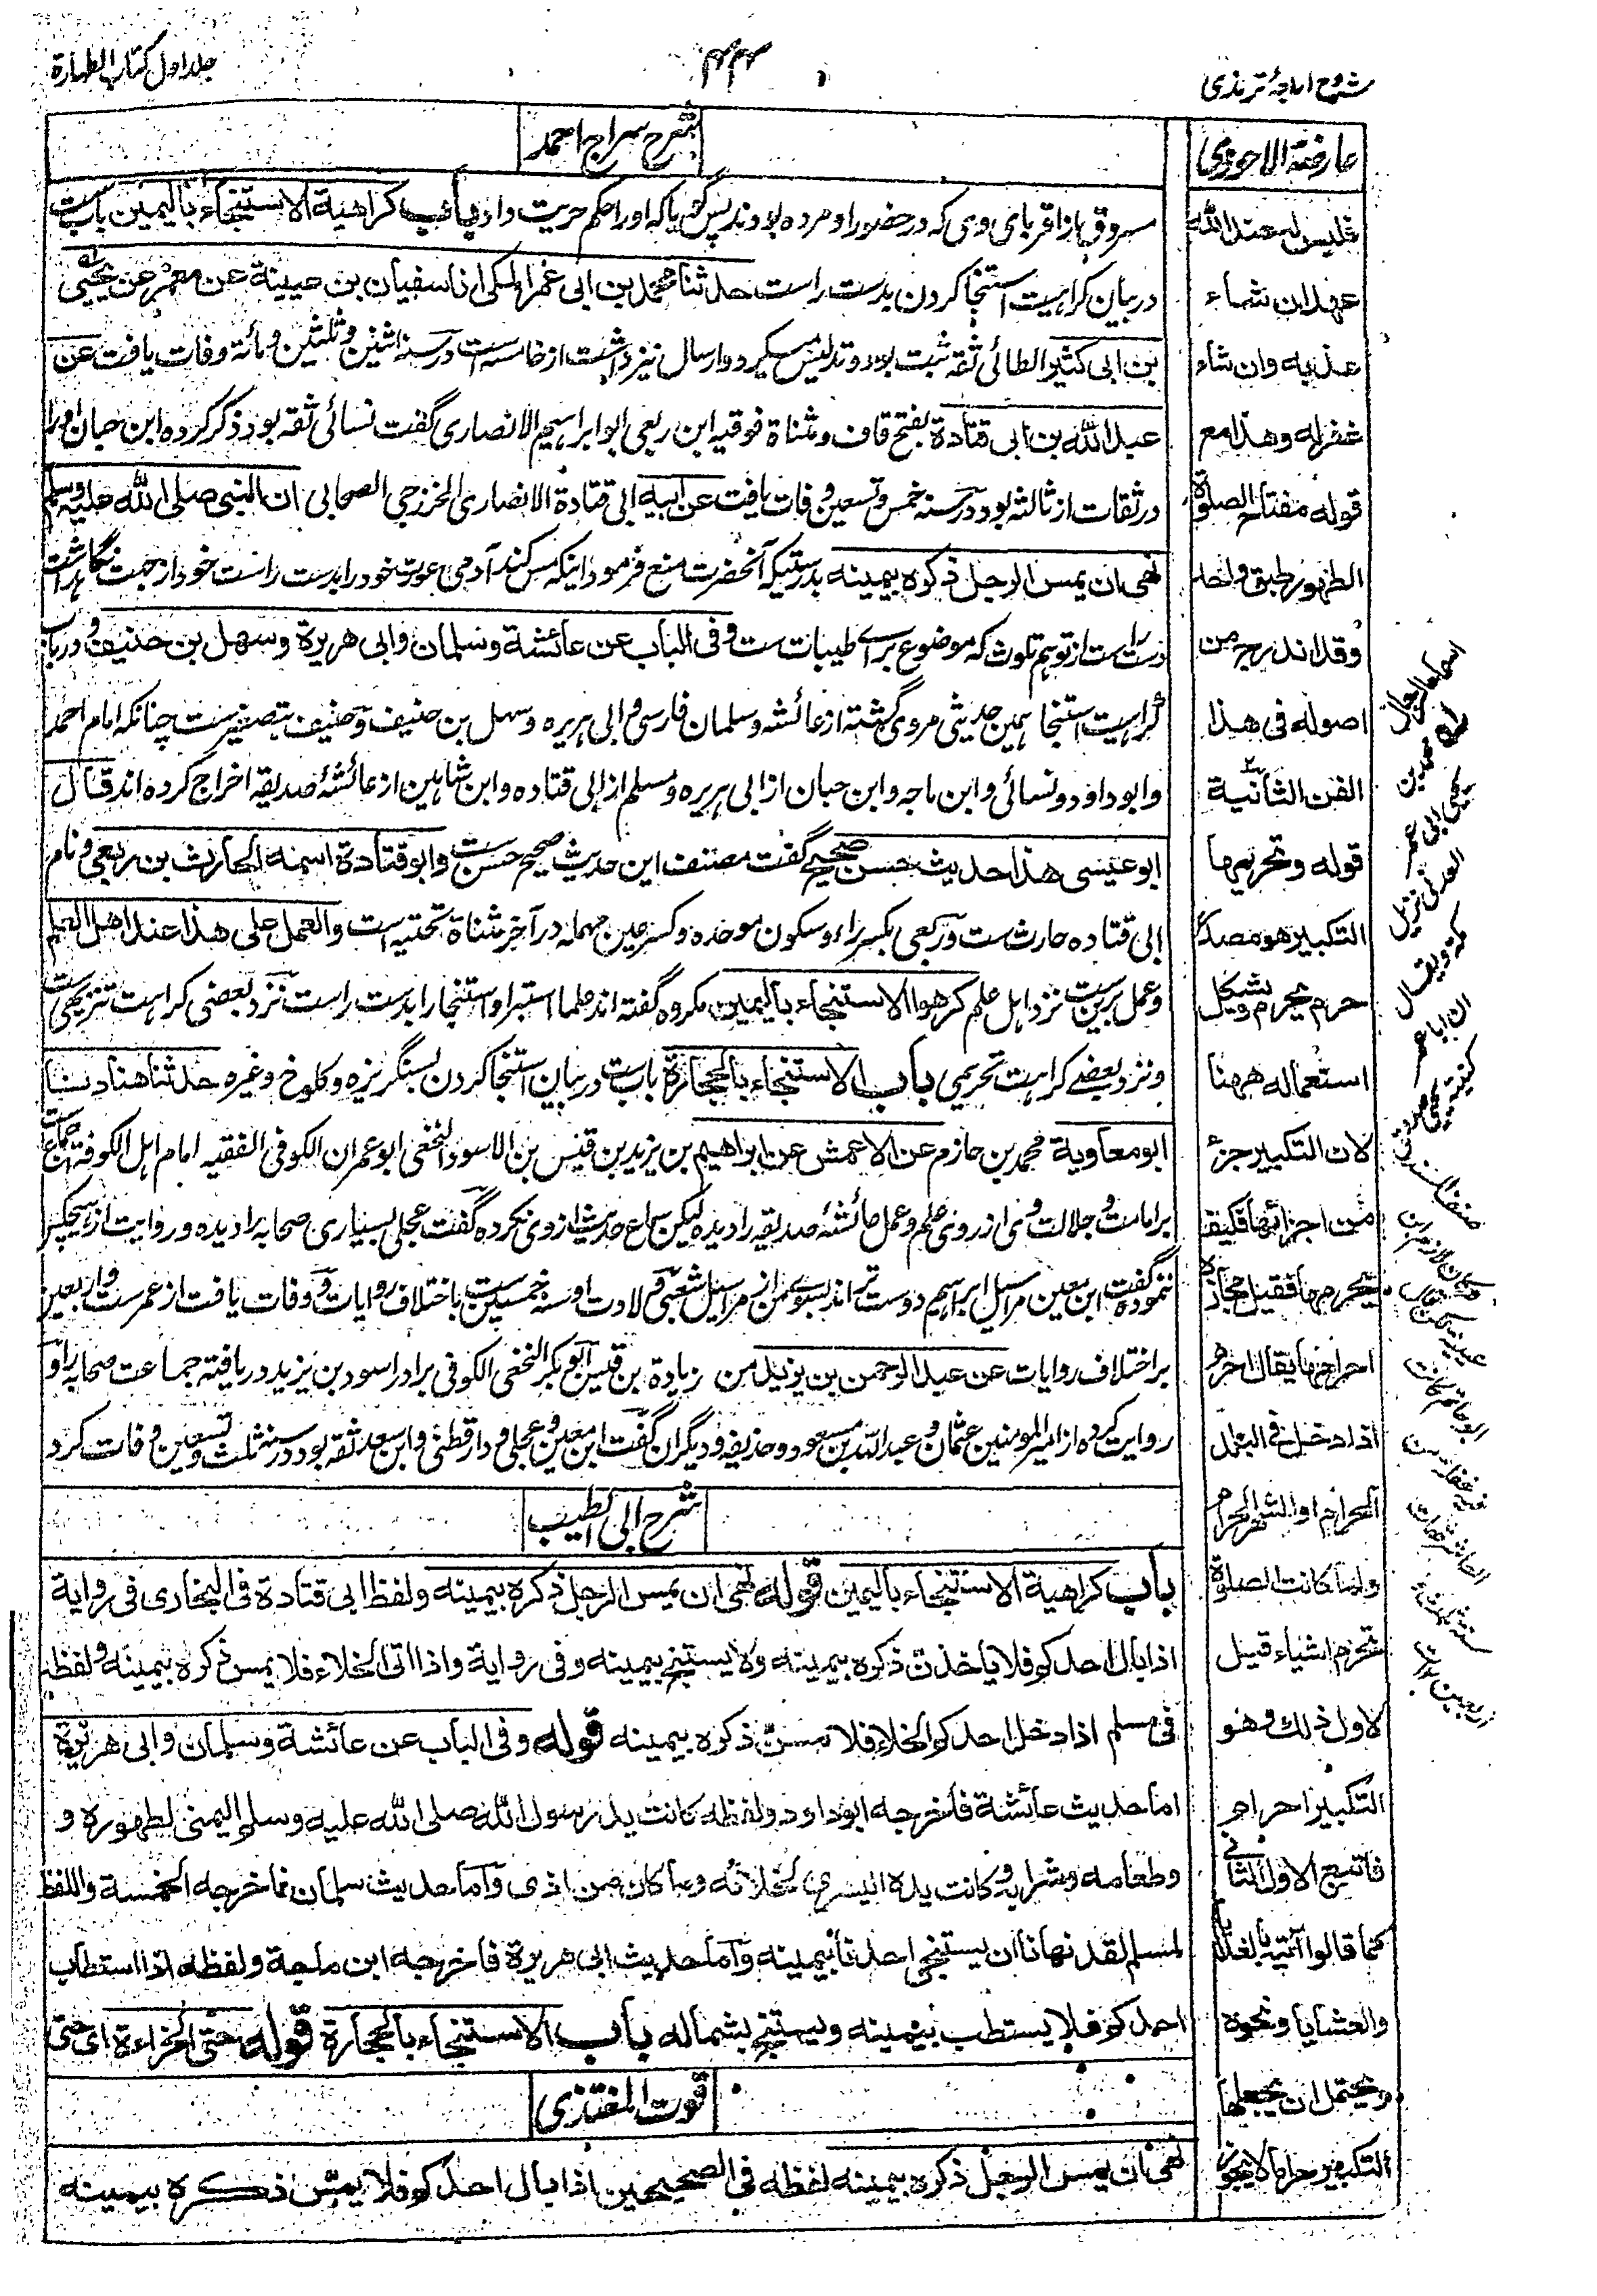 شروح اربعۂ ترمذی
۴۴
جلد اول کتاب الطهارة
شرح سراج احمد
مسروق باز اقربای وی که در حضور او مرده بودند پس گویا که او را حکم حریت داد باب كراهية الاستنجاء باليمين باب ست
در بیان کراہیت استنجا کردن بدست راست حدثنا محمد بن ابی عمر المکی انا سفیان بن عیینة عن معمر عن یحیی
بن ابی کثیر الطائی ثقه ثبت بود و تدلیس میکرد و ارسال نیز داشت از خامسه است در سنه اثنین و ثلثین و مائة وفات یافت عن
عبد الله بن ابی قتادة بفتح قاف و مثناة فوقیه ابن ربعی ابو ابراہیم الانصاری گفت نسائی ثقه بود ذکر کرده ابن حبان او را
در ثقات از ثالثه بود در سنه خمس و تسعین وفات یافت عن ابیه ابی قتادة الانصاری الخزرجی الصحابی ان النبی صلی الله علیه وسلم
نهی ان یمس الرجل ذکره بیمینه بدرستیکه آنحضرت منع فرمود اینکه مس کند آدمی عورت خود را بدست راست خود از جهت نگاه داشت
دست راست از توهم تلوث که موضوع برای طیبات ست و فی الباب عن عائشة و سلمان و ابی هریرة و سهل بن حنیف و در باب
کراہیت استنجا ہمین حدیثی مروی گشته از عائشه و سلمان فارسی و ابی ہریره و سهل بن حنیف و حنیف بتصغیر ست چنانکه امام احمد
و ابو داود و نسائی و ابن ماجه و ابن حبان از ابی ہریره و مسلم از ابی قتاده و ابن شاہین از عائشۂ صدیقه اخراج کرده اند قال
ابو عیسی هذا حدیث حسن صحیح گفت مصنف این حدیث صحیح حسن ست و ابو قتادة اسمه الحارث بن ربعی و نام
ابی قتاده حارث ست و ربعی بکسر راء و سکون موحده و کسر عین مهمله در آخر مثناة تحتیه است والعمل علی هذا عند اهل العلم
و عمل برین ست نزد اہل علم کرهوا الاستنجاء بالیمین مکروه گفته اند علما استبرا و استنجا را بدست راست نزد بعضی کراہت تنزیہی ست
و نزد بعضے کراہت تحریمی باب الاستنجاء بالحجارة باب ست در بیان استنجا کردن بسنگریزه و کلوخ و غیره حدثنا هناد نا
ابو معاویة محمد بن حازم عن الاعمش عن ابراهیم بن یزید بن قیس بن الاسود النخعی ابو عمران الکوفی الفقیه امام اہل الکوفة اجماع ست
بر امامت و جلالت وی از روی علم و عمل عائشۂ صدیقه را دیده لیکن سماع حدیث از وی نکرده گفت عجلی بسیاری صحابه را دیده و روایت از ہیچکس
ننموده گفت ابن معین مراسیل ابراہیم دوست تر اند بسوی من از مراسیل شعبی ولادت او سنه خمسین ست باختلاف روایات و وفات یافت از عمر ست و اربعین
بر اختلاف روایات عن عبد الرحمن بن یزید بن قیس ابو بکر النخعی الکوفی برادر اسود بن یزید دریافته جماعت صحابه را و
روایت کرده از امیر المومنین عثمان و عبد الله بن مسعود و حذیفه و دیگران گفت ابن معین و عجلی و دارقطنی و ابن سعد ثقه بود در سنه ثلث و تسعین وفات کرد
شرح ابی الطیب
باب کراهیة الاستنجاء بالیمین قوله نهی ان یمس الرجل ذکره بیمینه ولفظ ابی قتادة فی البخاری فی روایة
اذا بال احدکم فلا یاخذن ذکره بیمینه ولا یستنج بیمینه وفی روایة واذا اتی الخلاء فلا یمس ذکره بیمینه ولفظه
فی مسلم اذا دخل احدکم الخلاء فلا یمسن ذکره بیمینه قوله وفی الباب عن عائشة وسلمان وابی هریرة
اما حدیث عائشة فأخرجه ابو داود ولفظه کانت ید رسول الله صلی الله علیه وسلم الیمنی لطهوره و
وطعامه وشرابه وکانت یده الیسری لخلائه وما کان من اذی واما حدیث سلمان فاخرجه الخمسة واللفظ
لمسلم لقد نهانا ان یستنجی احدنا بیمینه واما حدیث ابی هریرة فاخرجه ابن ماجة ولفظه اذا استطاب
احدکم فلا یستطب بیمینه ویستنج بشماله باب الاستنجاء بالحجارة قوله حتی الخراءة ای حتی
قوت المغتذی
نهی ان یمس الرجل ذکره بیمینه لفظه فی الصحیحین اذا بال احدکم فلا یمس ذکره بیمینه
عارضة الاحوذی
فلیس له عند الله
عهد ان شاء
عذبه وان شاء
غفر له وهذا مع
قوله مفتاح الصلوة
الطهور طبق واحد
وقد اندرج من
اصوله فی هذا
الفن الثانیة
قوله وتحریمها
التکبیر هو مصدر
حرم یحرم ویشکل
استعماله ههنا
لان التکبیر جزء
من اجزائها فکیف
یحرمها فقیل مجازه
احرامها یقال احرم
اذا دخل فی البلد
الحرام او الشهر الحرام
ولما کانت الصلوة
تحرم اشیاء قیل
لاول ذلک وهو
التکبیر احرام
فاتبع الاول الثانی
کما قالوا آتیه بالغدایا
والعشایا ونحوه
ویحتمل ان یجعلها
التکبیر حراما لا یجوز